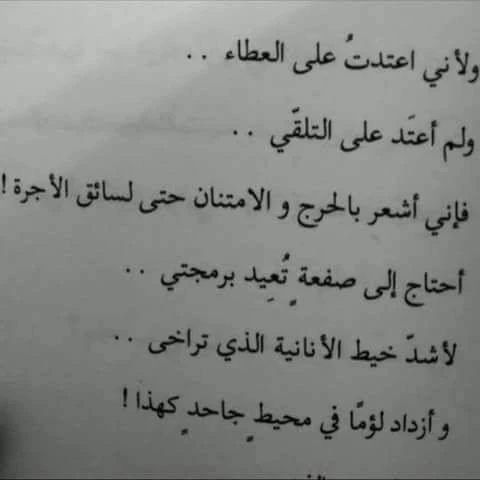 ولأني اعتدتُ على العطاء ..
ولم أعتَد على التلقّي ..
فإني أشعر بالحرج و الامتنان حتى لسائق الأجرة !
أحتاج إلى صفعةٍ تُعِيد برمجتي ..
لأشدّ خيط الأنانية الذي تراخى ..
و أزداد لؤمًا في محيطٍ جاحدٍ كهذا !